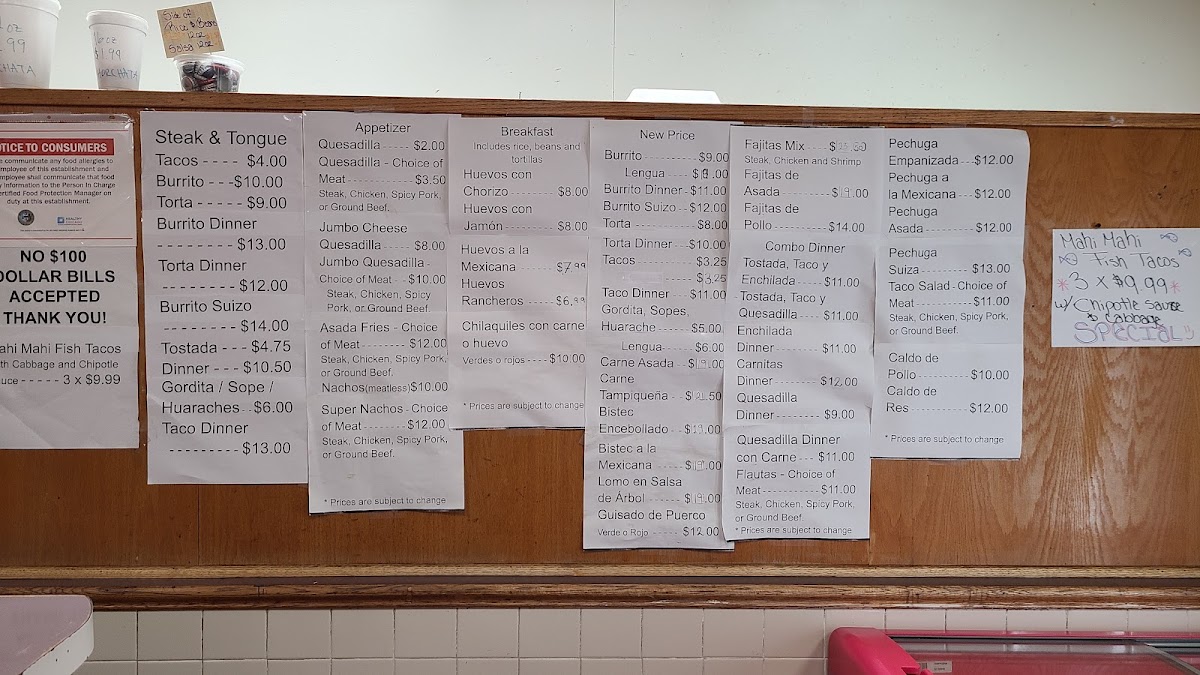 oz
99
CHATA
oz
$1.99
HORCHATA
Side of
Rice & Beans
12oz
Salsa 12oz
NOTICE TO CONSUMERS
communicate any food allergies to
employee of this establishment and
employee shall communicate that food
information to the Person In Charge
Certified Food Protection Manager on
duty at this establishment.
NO $100
DOLLAR BILLS
ACCEPTED
THANK YOU!
Mahi Mahi Fish Tacos
with Cabbage and Chipotle
Sauce ----- 3 x $9.99
Steak & Tongue
Tacos ---- $4.00
Burrito ---$10.00
Torta ---- $9.00
Burrito Dinner
--------- $13.00
Torta Dinner
--------- $12.00
Burrito Suizo
--------- $14.00
Tostada --- $4.75
Dinner --- $10.50
Gordita / Sope /
Huaraches -- $6.00
Taco Dinner
--------- $13.00
Appetizer
Quesadilla ------ $2.00
Quesadilla - Choice of
Meat ----------- $3.50
Steak, Chicken, Spicy Pork,
or Ground Beef.
Jumbo Cheese
Quesadilla ------ $8.00
Jumbo Quesadilla -
Choice of Meat -- $10.00
Steak, Chicken, Spicy
Pork, or Ground Beef.
Asada Fries - Choice
of Meat --------- $12.00
Steak, Chicken, Spicy Pork,
or Ground Beef.
Nachos(meatless)$10.00
Super Nachos - Choice
of Meat --------- $12.00
Steak, Chicken, Spicy Pork,
or Ground Beef.
* Prices are subject to change
Breakfast
Includes rice, beans and
tortillas
Huevos con
Chorizo -------- $8.00
Huevos con
Jamón --------- $8.00
Huevos a la
Mexicana ------ $7.99
Huevos
Rancheros ----- $6.99
Chilaquiles con carne
o huevo
Verdes o rojos ---- $10.00
* Prices are subject to change
New Price
Burrito ----------- $9.00
Lengua ---
Burrito Dinner-$11.00
Burrito Suizo -- $12.00
Torta ----------- $8.00
Torta Dinner --$10.00
Tacos --------- $3.25
------ $3.25
Taco Dinner -- $11.00
Gordita, Sopes,
Huarache ------ $5.00
Lengua ---- $6.00
Carne Asada --
Carne
Tampiqueña --
Bistec
Encebollado --
Bistec a la
Mexicana -----
Lomo en Salsa
de Árbol ------
Guisado de Puerco
Verde o Rojo ----- $12.00
Fajitas Mix ----
Steak, Chicken and Shrimp
Fajitas de
Asada ---------
Fajitas de
Pollo ---------- $14.00
Combo Dinner
Tostada, Taco y
Enchilada ------ $11.00
Tostada, Taco y
Quesadilla ----- $11.00
Enchilada
Dinner --------- $11.00
Carnitas
Dinner --------- $12.00
Quesadilla
Dinner --------- $9.00
Quesadilla Dinner
con Carne --- $11.00
Flautas - Choice of
Meat ----------- $11.00
Steak, Chicken, Spicy Pork,
or Ground Beef.
* Prices are subject to change
Pechuga
Empanizada --- $12.00
Pechuga a
la Mexicana --- $12.00
Pechuga
Asada --------- $12.00
Pechuga
Suiza --------- $13.00
Taco Salad - Choice of
Meat ---------- $11.00
Steak, Chicken, Spicy Pork,
or Ground Beef.
Caldo de
Pollo --------- $10.00
Caldo de
Res ---------- $12.00
* Prices are subject to change
Mahi Mahi
Fish Tacos
* 3 x $9.99 *
w/ Chipotle Sauce
& Cabbage
SPECIAL!!